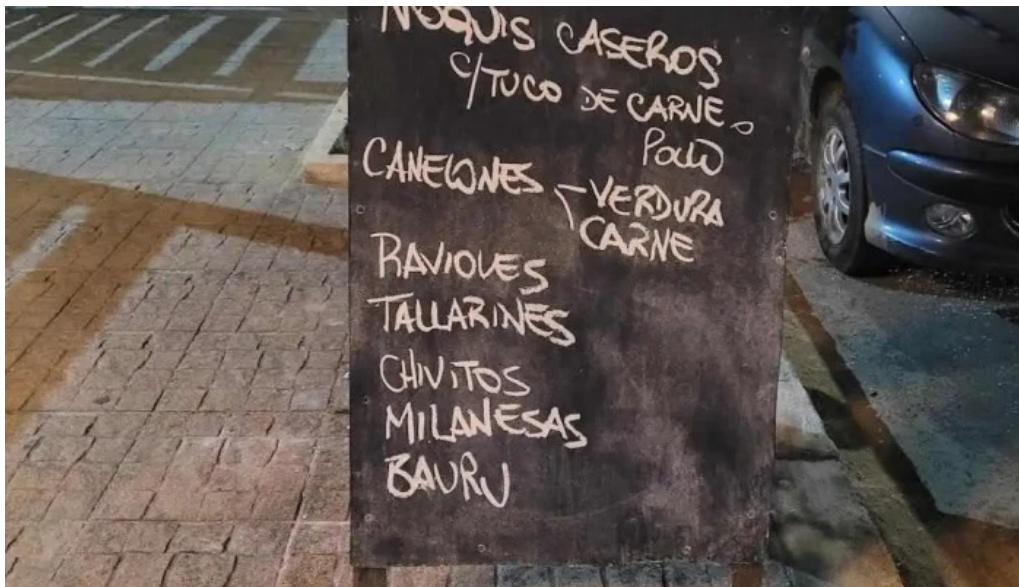 ÑOQUIS CASEROS
C/TUCO DE CARNE o
POLLO
CANELONES - VERDURA
CARNE
RAVIOLES
TALLARINES
CHIVITOS
MILANESAS
BAURU